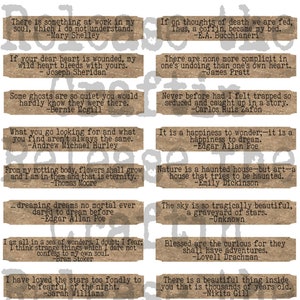 There is something at work in my
soul, which I do not understand.
-Mary Shelley
If on thoughts of death we are fed,
Thus, a coffin, became my bed.
-E.A. Bucchianeri
If your dear heart is wounded, my
wild heart bleeds with yours.
- Joseph Sheridan
There are none more complicit in
one's undoing than one's own heart.
-James Pratt
Some ghosts are so quiet you would
hardly know they were there.
- Bernie Mcgill
Never before had I felt trapped so
seduced and caught up in a story.
-Carlos Ruiz Zafon
What you go looking for and what
you find aren't always the same.
-Andrew Michael Hurley
It is a happiness to wonder;-it is a
happiness to dream.
-Edgar Allan Poe
From my rotting body, flowers shall grow
and I am in them and that is eternity.
-Thomas Moore
Nature is a haunted house-but art-a
house that tries to be haunted.
-Emily Dickinson
dreaming dreams no mortal ever
dared to dream before
-Edgar Allan Poe
The sky is so tragically beautiful,
a graveyard of stars.
-Unknown
I am all in a sea of wonders. I doubt; I fear;
I think strange things which I dare not
confess to my own soul.
-Bram Stoker
Blessed are the curious for they
shall have adventures.
-Lovell Drachman
I have loved the stars too fondly to
be fearful of the night.
-Sarah Williams
There is a beautiful thing inside
you that is thousands of years old.
-Nikita Gill
Release the
Craft
Release the
Craft